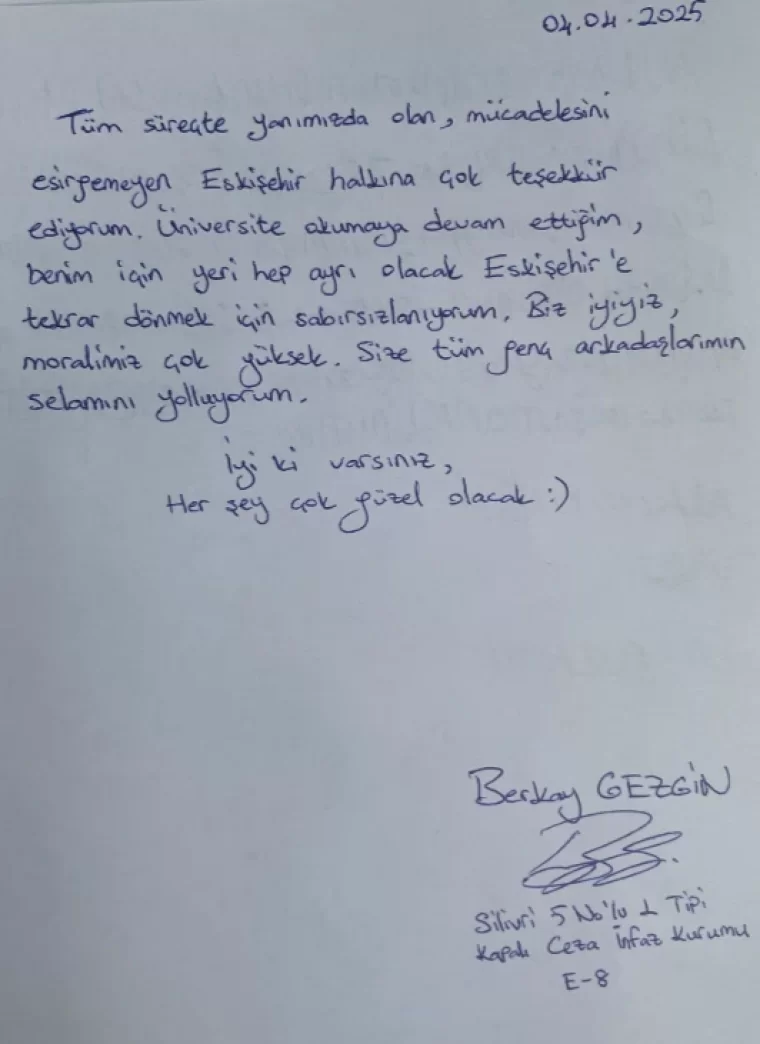 04.04.2025
Tüm süreçte yanımızda olan, mücadelesini
esirgemeyen Eskişehir halkına çok teşekkür
ediyorum. Üniversite okumaya devam ettiğim,
benim için yeri hep ayrı olacak Eskişehir'e
tekrar dönmek için sabırsızlanıyorum. Biz iyiyiz,
moralimiz çok yüksek. Size tüm genç arkadaşlarımın
selamını yolluyorum.
İyi ki varsınız,
Her şey çok güzel olacak :)
Berkay GEZGİN
Silivri 5 No'lu L Tipi
Kapalı Ceza İnfaz Kurumu
E-8